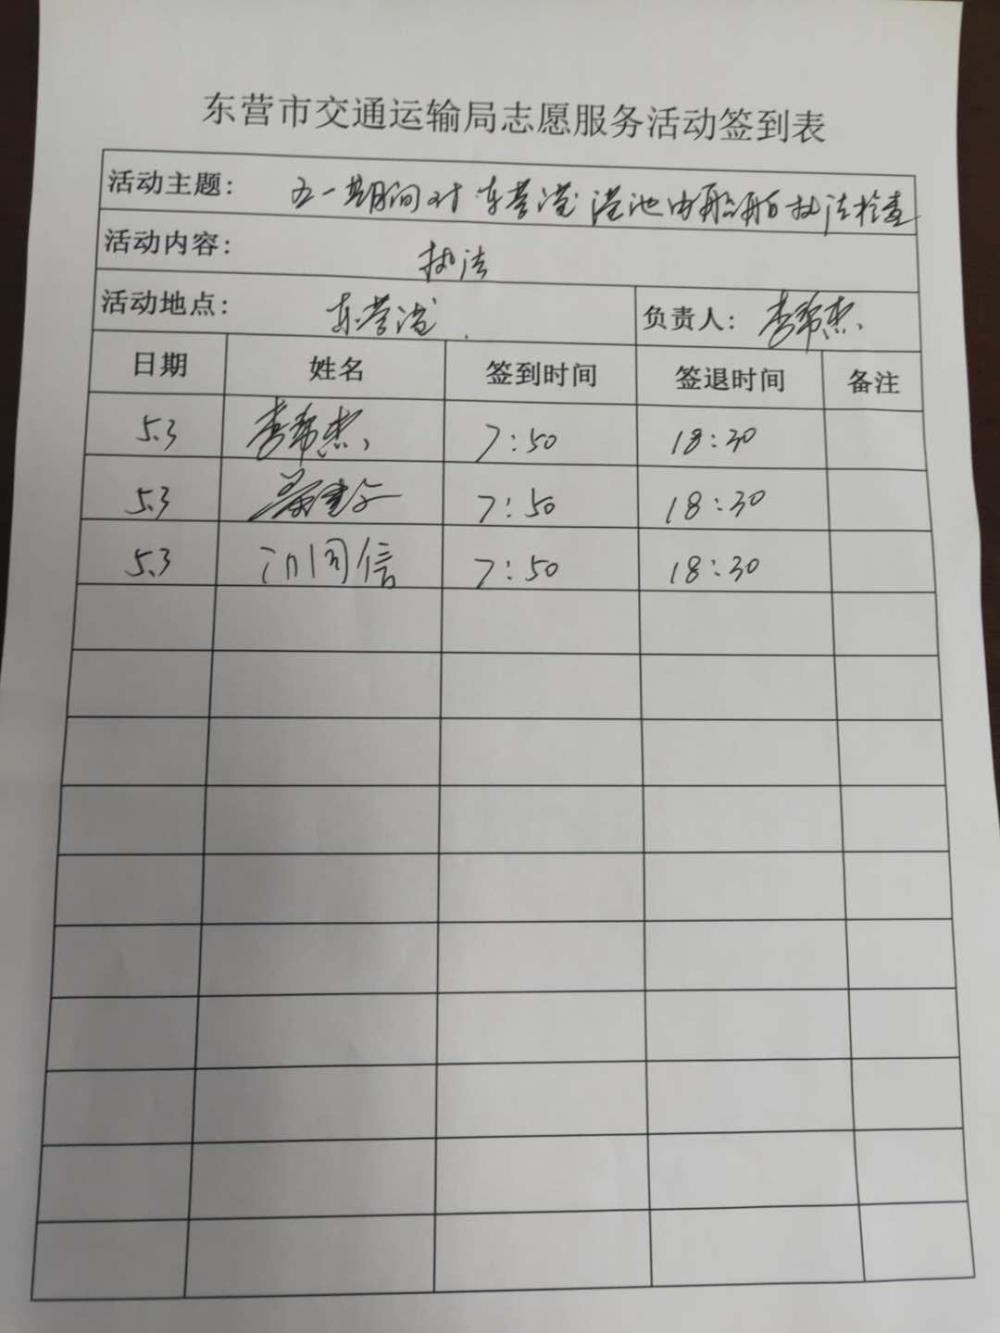 东营市交通运输局志愿服务活动签到表
活动主题: 五一期间对东营港港池内船舶执法检查
活动内容: 执法
活动地点: 东营港 负责人: 李希杰
日期 姓名 签到时间 签退时间 备注
5.3 李希杰 7:50 18:30
5.3 7:50 18:30
5.3 同信 7:50 18:30